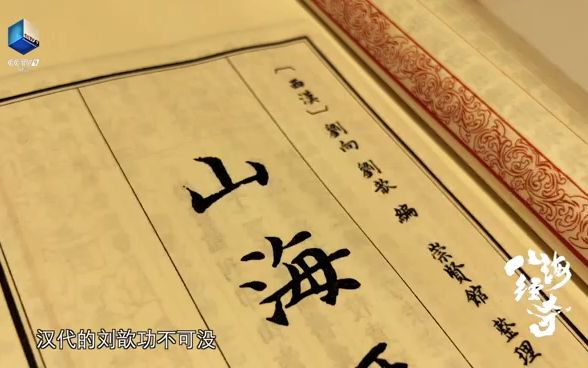 CCTV9
[西漢]劉向 劉歆 編 崇賢館 整理
山海
山海经奇
汉代的刘歆功不可没